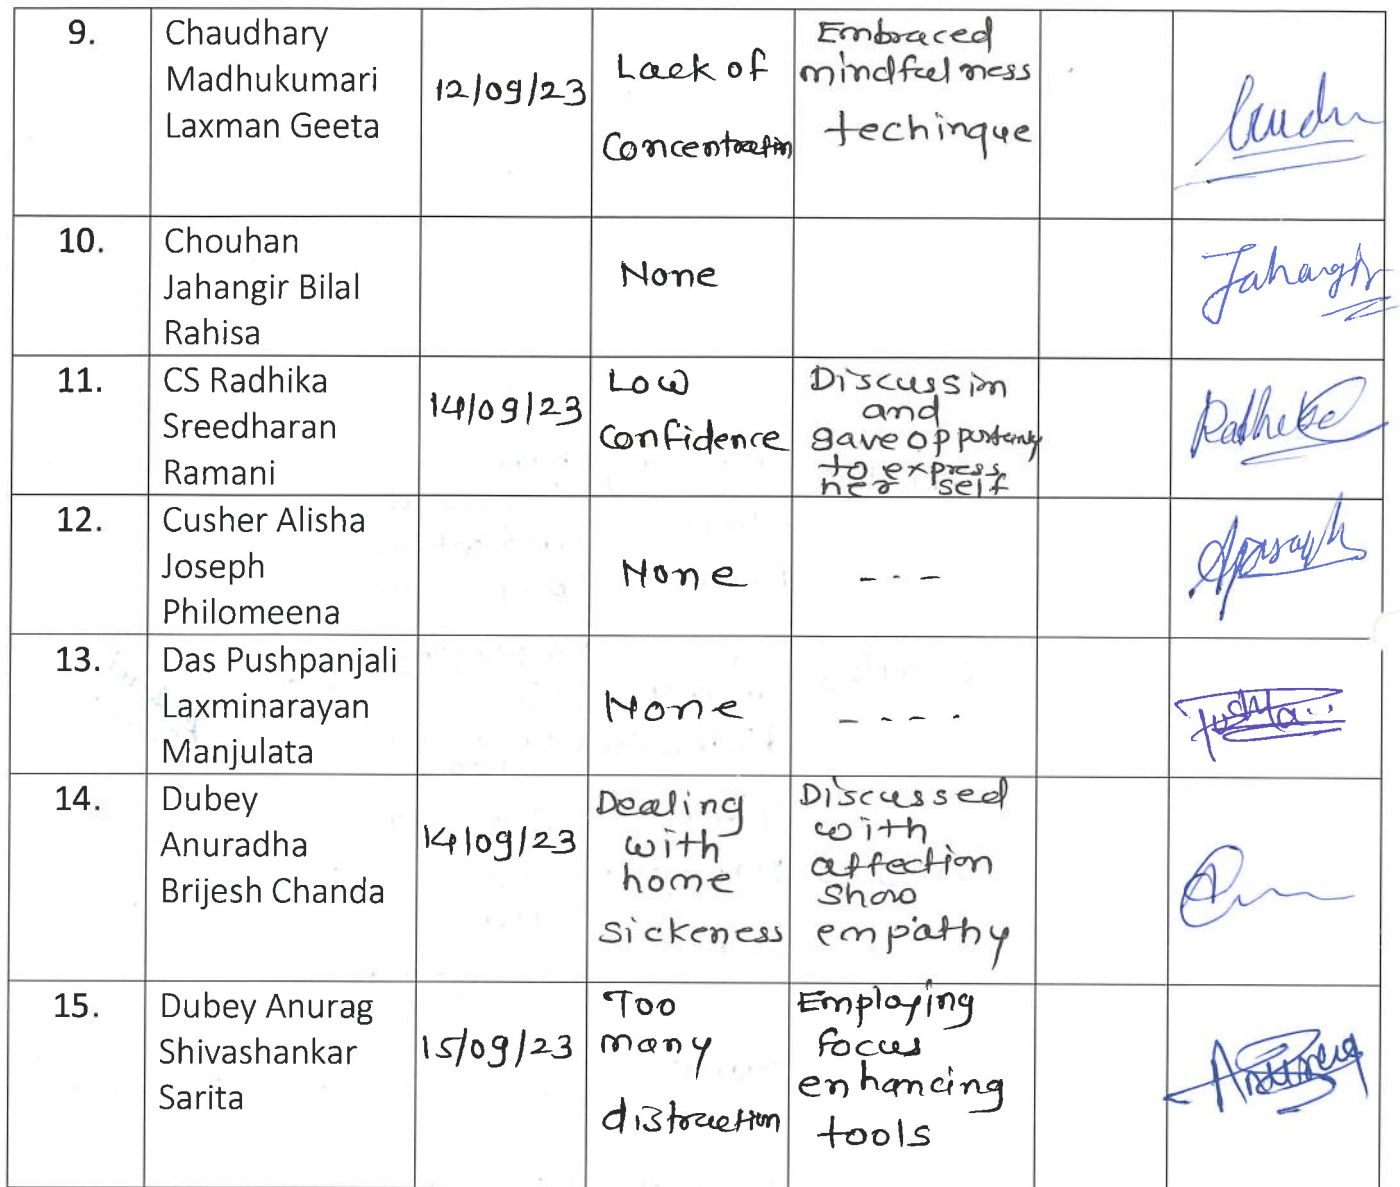 9.
Chaudhary
Madhukumari
Laxman Geeta
12/09/23
Lack of
Concentration
Embraced
mindfulness
techinque
10.
Chouhan
Jahangir Bilal
Rahisa
None
Jahangir
11.
CS Radhika
Sreedharan
Ramani
14/09/23
Low
Confidence
Discussion
and
gave opportunity
to express
her self
Radhika
12.
Cusher Alisha
Joseph
Philomeena
None
- - -
13.
Das Pushpanjali
Laxminarayan
Manjulata
None
- - - -
14.
Dubey
Anuradha
Brijesh Chanda
14/09/23
Dealing
with
home
sickeness
Discussed
with
affection
show
empathy
15.
Dubey Anurag
Shivashankar
Sarita
15/09/23
Too
many
distraction
Employing
focus
enhancing
tools
Anurag